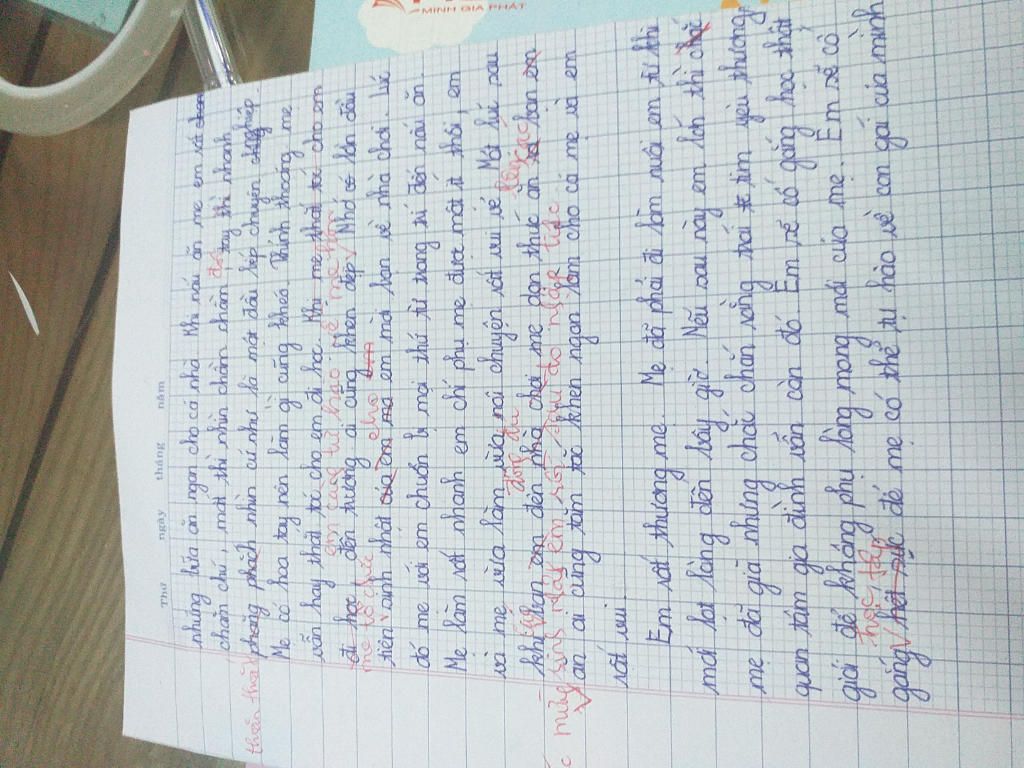 MINH GIA PHÁT
Thứ ngày tháng năm
những bữa ăn ngon cho cả nhà. Khi nấu ăn mẹ em rất
chăm chỉ, mắt thì nhìn chằm chằm, tay thì nhanh
thoăn thoắt
phăng phách nhìn cứ như là một đầu bếp chuyên nghiệp.
Mẹ có hoa tay nên làm gì cũng khéo. Thỉnh thoảng mẹ
vẫn hay thắt tóc cho em đi học. Khi mẹ thắt tóc cho em
em càng tự hào về mẹ hơn
đi học đến trường ai cũng khen đẹp. Nhớ có lần đầu
mẹ tổ chức cho
tiên sinh nhật của em mà em mời bạn về nhà chơi. Lúc
đó mẹ với em chuẩn bị mọi thứ từ trang trí đến nấu ăn.
Mẹ làm rất nhanh em chỉ phụ mẹ được một ít thôi, em
và mẹ vừa làm vừa nói chuyện rất vui vẻ. Một lúc sau
đông đủ các
khi bạn em đến nhà chơi mẹ dọn thức ăn ra bạn em
mừng sinh nhật em
ăn ai cũng tấm tắc khen ngon làm cho cả mẹ và em
rất vui.
Em rất thương mẹ. Mẹ đã phải đi làm nuôi em từ khi
mới lọt lòng đến bây giờ. Nếu sau này em lớn thì chắc
mẹ đã già nhưng chắc chắn rằng trái tim yêu thương,
quan tâm gia đình vẫn còn đó. Em sẽ cố gắng học thật
giỏi để không phụ lòng mong mỏi của mẹ. Em sẽ cố
học tập
gắng hết sức để mẹ có thể tự hào về con gái của mình